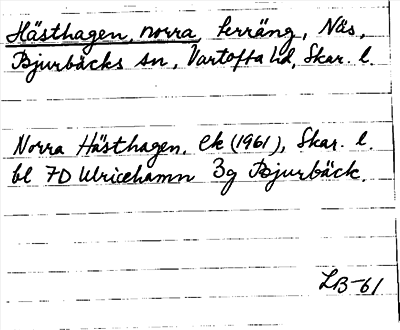 Hästhagen, norra, terräng, Näs,
Bjurbäcks sn, Vartofta hd, Skar. l.
Norra Hästhagen. ek (1961), Skar. l.
bl 7D Ulricehamn 3g Bjurbäck.
LB-61